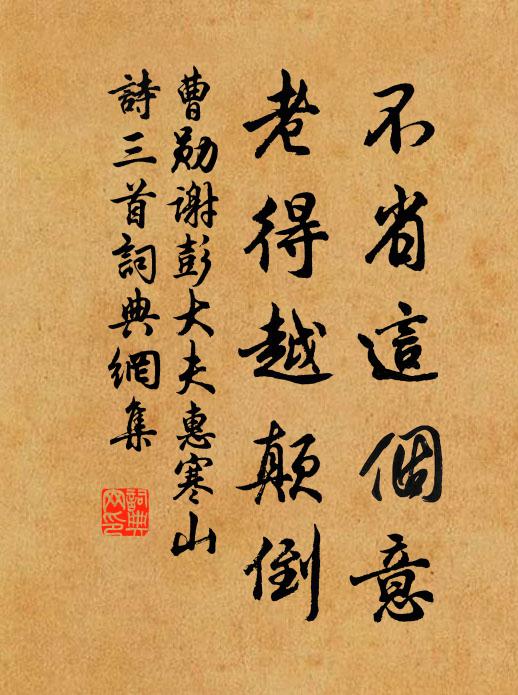 不省這個意
老得越顛倒
曹勛謝彭大夫惠寒山
詩三首詞典網集
詞典网印